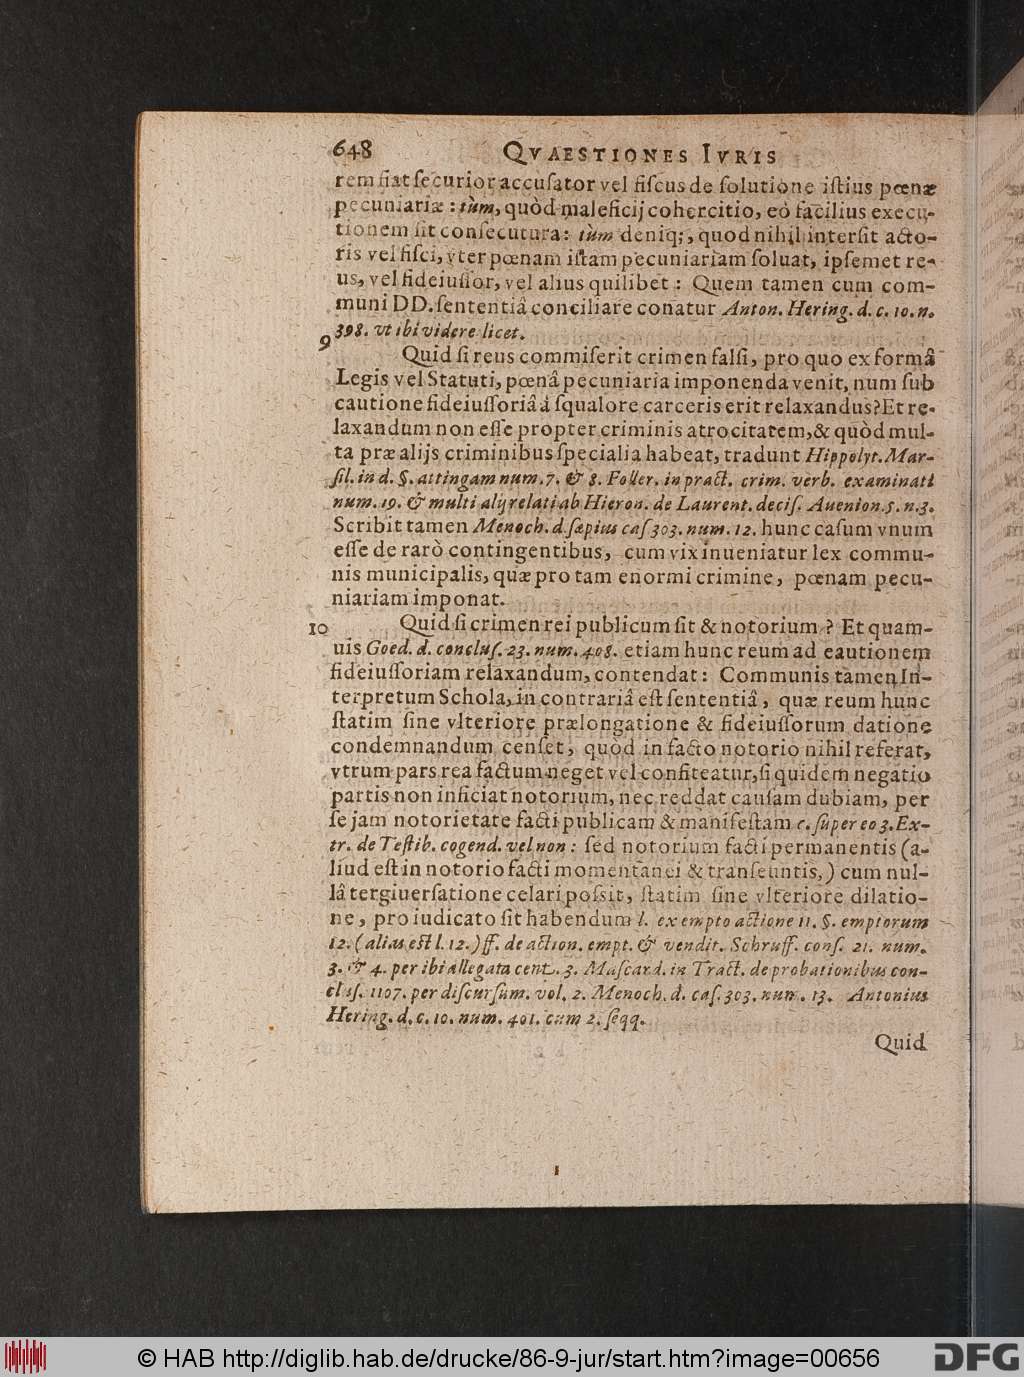 648 QVAESTIONES IVRIS
rem fiat ſecurior accuſator vel fiſcus de ſolutione iſtius pœnæ
pecuniariæ : tùm, quòd maleficij cohercitio, eò facilius execu-
tionem ſit conſecutura: tùm deniq;, quod nihil interſit acto-
ris vel fiſci, vter pœnam iſtam pecuniariam ſoluat, ipſemet re-
us, vel fideiuſſor, vel alius quilibet : Quem tamen cum com-
muni DD. ſententiâ conciliare conatur Anton. Hering. d. c. 10. n.
398. vt ibi videre licet.
9 Quid ſi reus commiſerit crimen falſi, pro quo ex formâ
Legis vel Statuti, pœnâ pecuniaria imponenda venit, num ſub
cautione fideiuſſoriâ à ſqualore carceris erit relaxandus? Et re-
laxandum non eſſe propter criminis atrocitatem, & quòd mul-
ta præ alijs criminibus ſpecialia habeat, tradunt Hippolyt. Mar-
ſil. in d. §. attingam num. 7. & 8. Foller. in pract. crim. verb. examinati
num. 19. & multi alij relati ab Hieron. de Laurent. deciſ. Auenion. 5. n. 3.
Scribit tamen Menoch. d. ſæpius caſ 303. num. 12. hunc caſum vnum
eſſe de rarò contingentibus, cum vix inueniatur lex commu-
nis municipalis, quæ pro tam enormi crimine, pœnam pecu-
niariam imponat.
10 Quid ſi crimen rei publicum ſit & notorium ? Et quam-
uis Goed. d. concluſ. 23. num. 408. etiam hunc reum ad cautionem
fideiuſſoriam relaxandum, contendat : Communis tamen In-
terpretum Schola, in contrariâ eſt ſententiâ, quæ reum hunc
ſtatim ſine vlteriore prælongatione & fideiuſſorum datione
condemnandum cenſet, quòd in facto notorio nihil referat,
vtrum pars rea factum neget vel confiteatur, ſi quidem negatio
partis non inficiat notorium, nec reddat cauſam dubiam, per
ſe jam notorietate facti publicam & manifeſtam c. ſuper eo 3. Ex-
tr. de Teſtib. cogend. vel non : ſed notorium facti permanentis (a-
liud eſt in notorio facti momentanei & tranſeuntis,) cum nul-
lâ tergiuerſatione celari poſsit, ſtatim ſine vlteriore dilatio-
ne, pro iudicato ſit habendum l. ex empto actione 11. §. emptorum
12. ( alias eſt l. 12. ) ff. de action. empt. & vendit. Schruff. conſ. 21. num.
3. & 4. per ibi allegata cent. 3. Maſcard. in Tract. de probationibus con-
cluſ. 1107. per diſcurſum. vol. 2. Menoch. d. caſ. 303. num. 13. Antonius
Hering. d. c. 10. num. 401. cum 2. ſeqq.
Quid
© HAB http://diglib.hab.de/drucke/86-9-jur/start.htm?image=00656
DFG